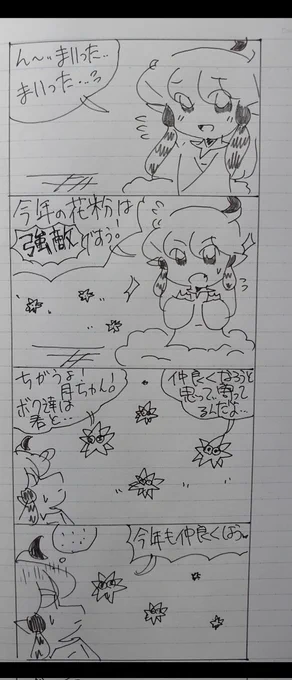 ん〜…まいった…
まいった…ろ
今年の花粉は
強敵
げすう!
ちがうよ!
月ちゃん!
ボク達は
君と…
仲良くなろうと
思って、寄って
るんだよ…
今年も仲良くしよう〜